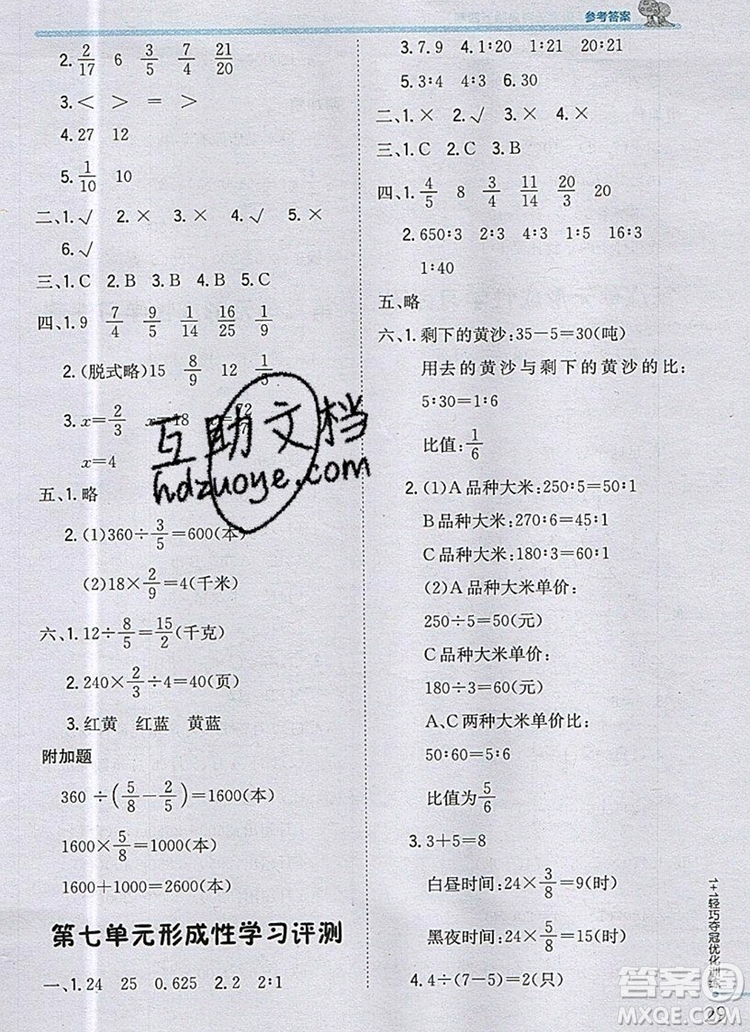 参考答案
2. 2/17 6 3/5 7/4 21/20
3.< > = >
4.27 12
5. 1/10 10
二、1.√ 2.× 3.× 4.√ 5.×
6.√
三、1.C 2.B 3.A 4.C
四、1.9 7/4 9/4 1/14 16/25 1/9
2.(脱式略)15 8/9 12
3. x=2/3 x=18
x=4
五、1.略
2.(1)360÷3/5=600(本)
(2)18×2/9=4(千米)
六、1.12÷8/5=15/2(千克)
2.240×2/3÷4=40(页)
3.红黄 红蓝 黄蓝
附加题
360÷(5/8-2/5)=1600(本)
1600×5/8=1000(本)
1600+1000=2600(本)
第七单元形成性学习评测
一、1.24 25 0.625 2.2 2:1
3.7.9 4.1:20 1:21
5.3:4 4:3 6.30
二、1.× 2.√ 3.× 4.√
三、1.C 2.C 3.B
四、1. 4/5 8 3/4 11/14 20/3 20
2.650:3 7:1 7:2 5:1
1:40
五、略
六、1.剩下的黄沙:35-5=30(吨)
用去的黄沙与剩下的黄沙的比:
5:30=1:6
比值:1/6
2.(1)A品种大米:250:5=50:1
B品种大米:270:6=45:1
C品种大米:180:3=60:1
(2)A品种大米单价:
250÷5=50(元)
C品种大米单价:
180÷3=60(元)
A、C两种大米单价比:
50:60=5:6
比值为5/6
3.3+5=8
白昼时间:24×3/8=9(时)
黑夜时间:24×5/8=15(时)
4.4÷(7-5)=2(只)
1+1轻巧夺冠优化训练
29
互助文档
hdzuoye.com
答案圈
MXQE.COM